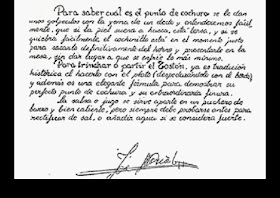 Para saber cual es el punto de cochura se le dan
unos golpecitos con la yema de un dedo y entenderemos fácil
mente, que si la piel suena a hueca, está tersa, y si se
quiebra fácilmente el cochinillo está en el momento justo
para sacarlo definitivamente del horno y presentarlo en la
mesa, sin dar lugar a que se enfríe lo más mínimo.
Para trinchar o partir el Tostón, ya es tradición
histórica el hacerlo con el plato (desprobándolo con el
y además es una elegante fórmula para demostrar su
perfecto punto de cochura y su extraordinaria finura.
La salsa o jugo se sirve aparte en un puchero de
barro y bien caliente, pero siempre debe probarse antes para
rectificar de sal, o añadir agua si se considera fuerte.